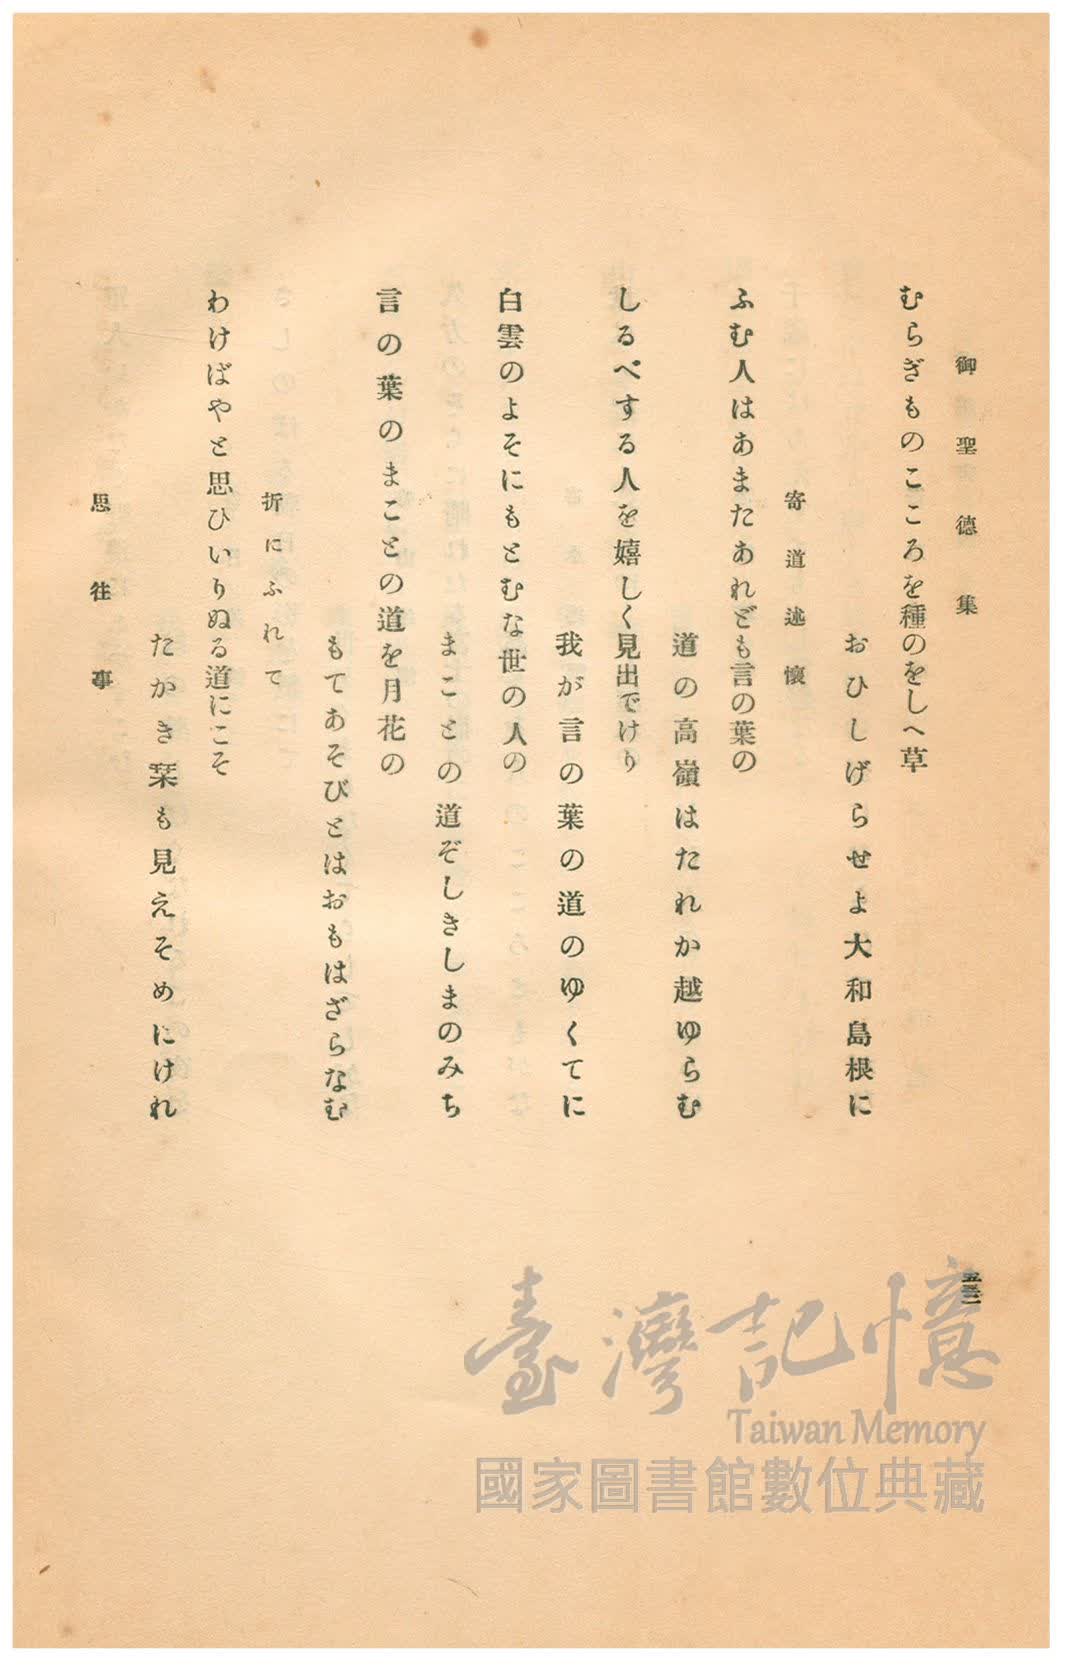 御聖德集
むらぎものこころを種のをしへ草
おひしげらせよ大和島根に
寄道述懷
ふむ人はあまたあれども言の葉の
道の高嶺はたれか越ゆらむ
しるべする人を嬉しく見出でけり
我が言の葉の道のゆくてに
白雲のよそにもとむな世の人の
まことの道ぞしきしまのみち
言の葉のまことの道を月花の
もてあそびとはおもはざらなむ
折にふれて
わけばやと思ひいりぬる道にこそ
たかき栞も見えそめにけれ
思往事
臺灣記憶
Taiwan Memory
國家圖書館數位典藏